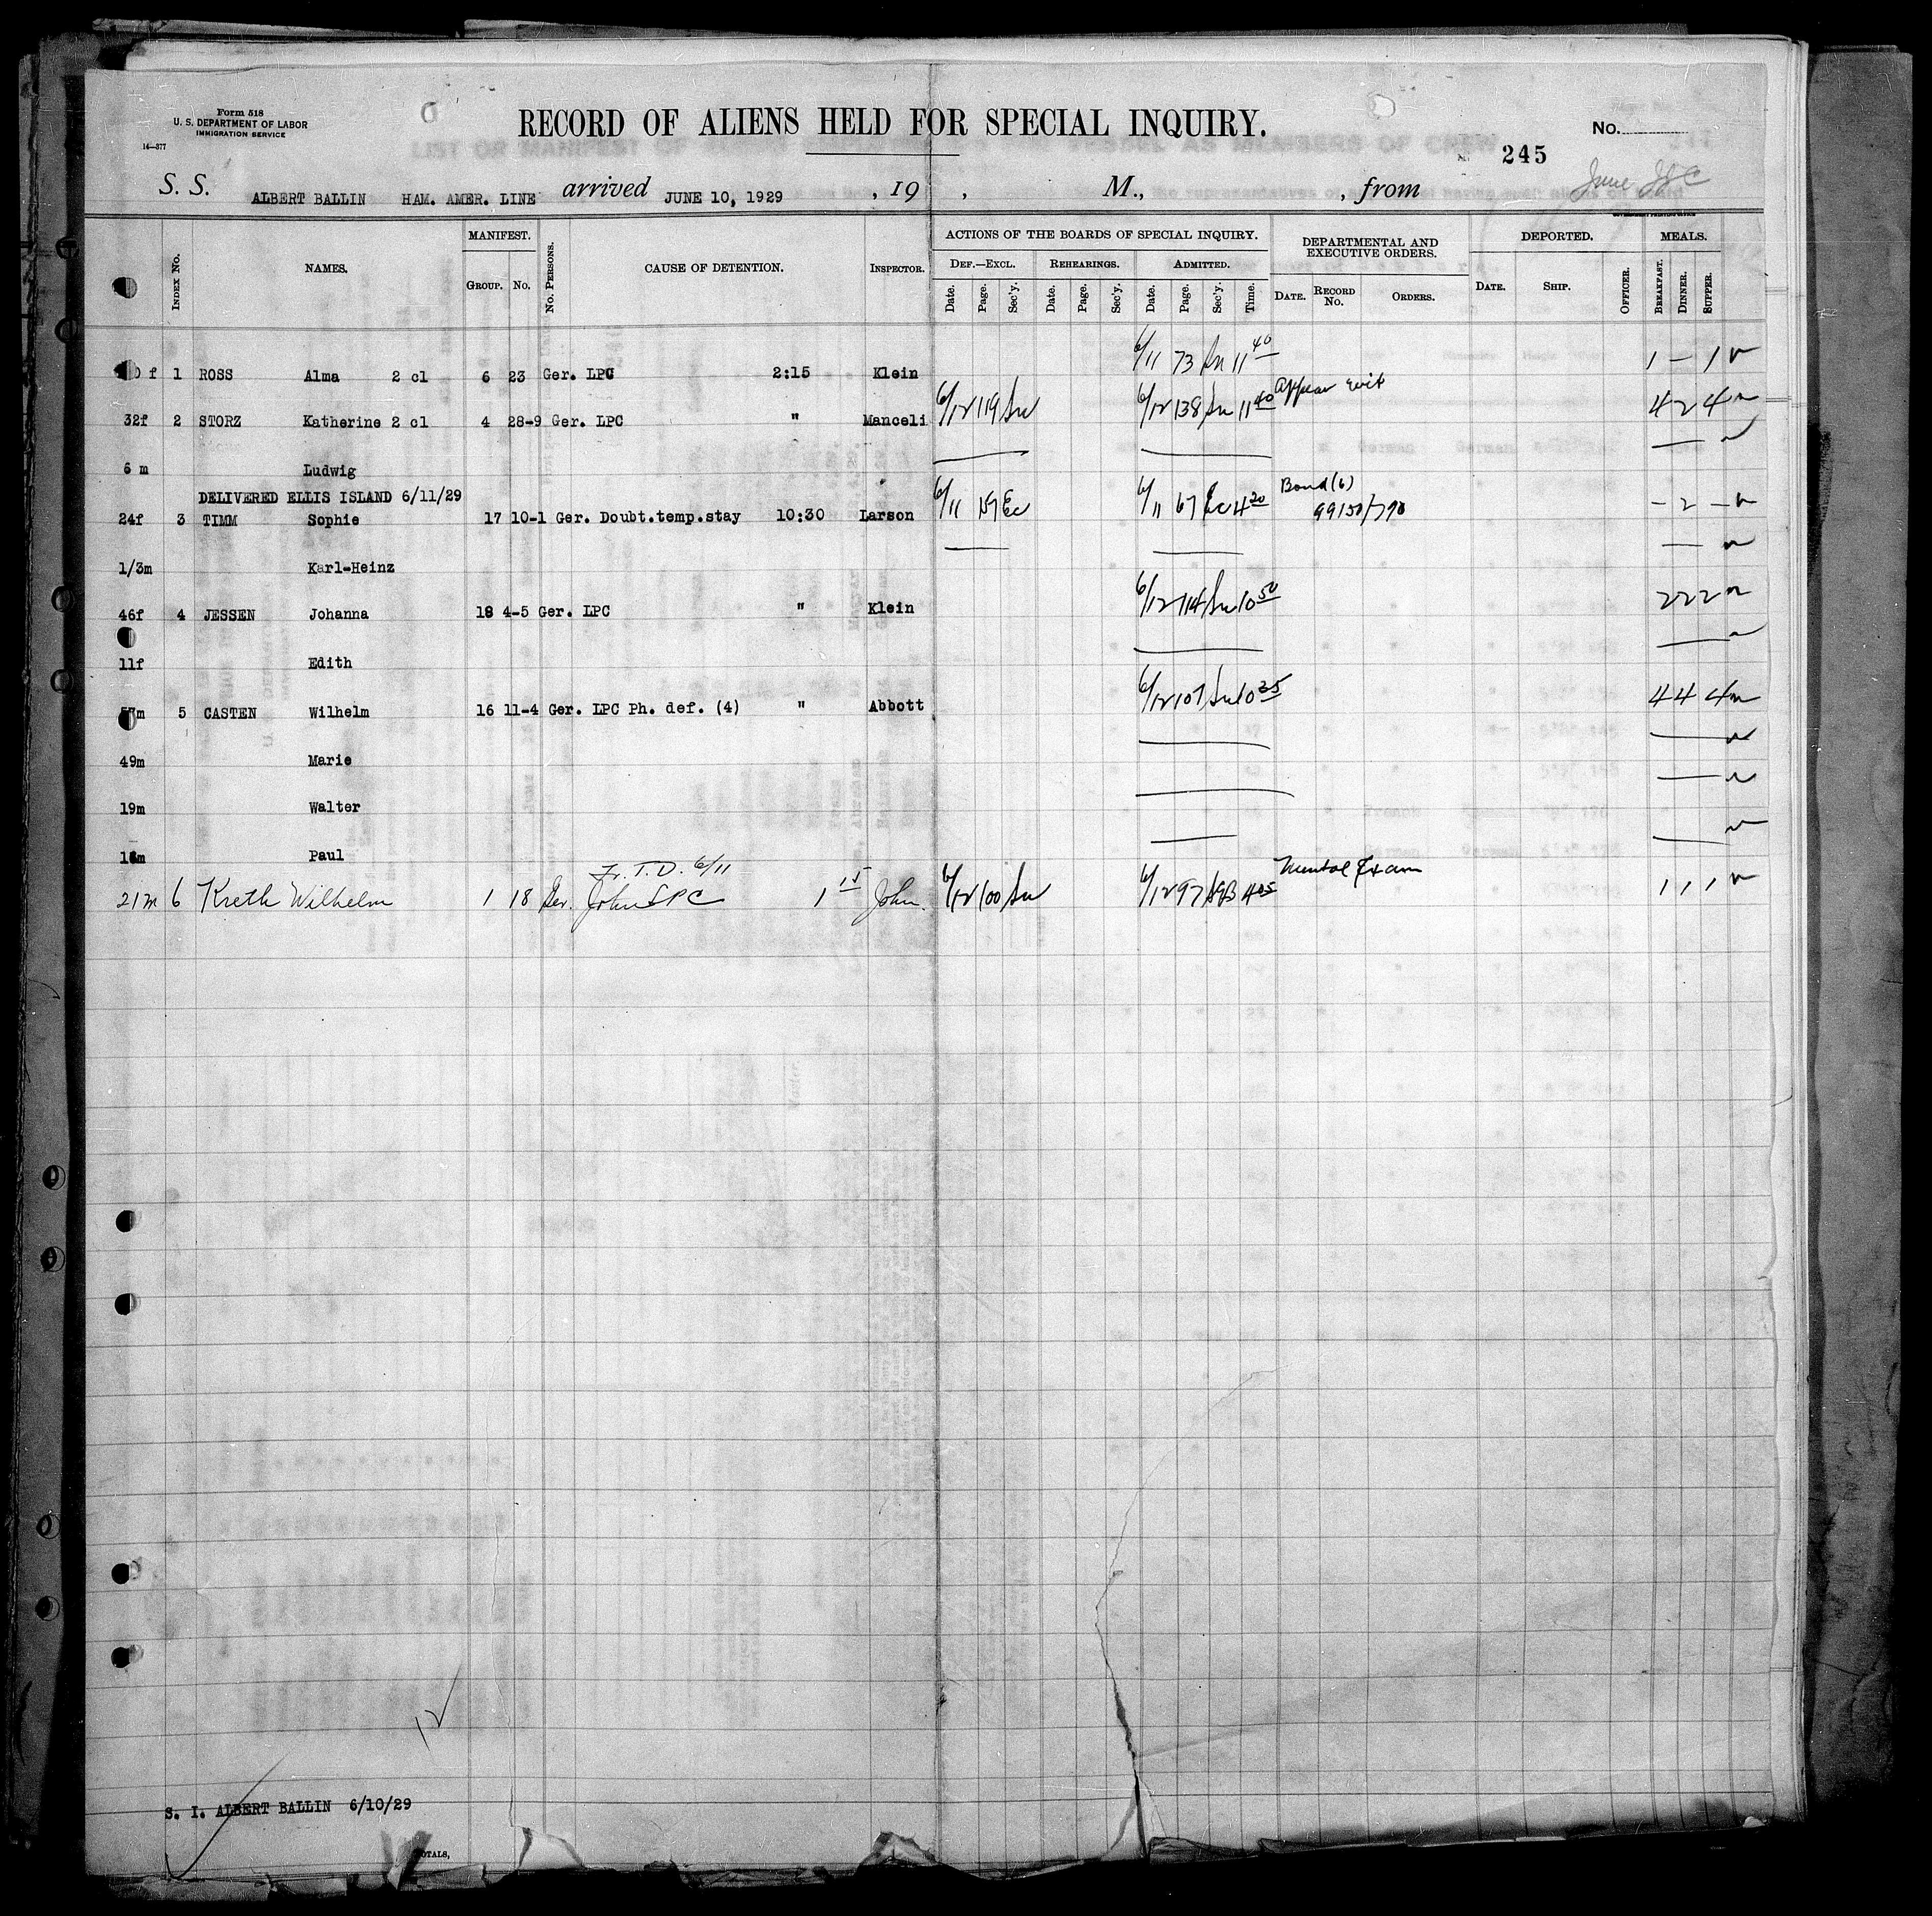 Form 518
U. S. DEPARTMENT OF LABOR
IMMIGRATION SERVICE
14—377
RECORD OF ALIENS HELD FOR SPECIAL INQUIRY.
No.
245
S. S. ALBERT BALLIN HAM. AMER. LINE arrived JUNE 10, 1929 , 19 , M., , from
GOVERNMENT PRINTING OFFICE
INDEX No. NAMES. MANIFEST. GROUP. No. No. PERSONS. CAUSE OF DETENTION. INSPECTOR. ACTIONS OF THE BOARDS OF SPECIAL INQUIRY. DEF.—EXCL. Date. Page. Sec'y. REHEARINGS. Date. Page. Sec'y. ADMITTED. Date. Page. Sec'y. Time. DEPARTMENTAL AND EXECUTIVE ORDERS. DATE. RECORD No. ORDERS. DEPORTED. DATE. SHIP. OFFICER. MEALS. BREAKFAST. DINNER. SUPPER.
f 1 ROSS Alma 2 cl 6 23 Ger. LPC 2:15 Klein 6/11 73 11 40 1 — 1
32f 2 STORZ Katherine 2 cl 4 28-9 Ger. LPC " Manceli 6/12 119 6/12 138 11 40 Appear 4 2 4
6 m Ludwig
DELIVERED ELLIS ISLAND 6/11/29
24f 3 TIMM Sophie 17 10-1 Ger. Doubt.temp.stay 10:30 Larson 6/11 6/11 67 4 20 Bond (6) 99150/790 – 2 –
1/3m Karl-Heinz
46f 4 JESSEN Johanna 18 4-5 Ger. LPC " Klein 6/12 114 10 50 2 2 2
11f Edith
57m 5 CASTEN Wilhelm 16 11-4 Ger. LPC Ph. def. (4) " Abbott 6/12 107 10 35 4 4 4
49m Marie
19m Walter
Paul
T.D. 6/11
21m 6 Kreth Wilhelm 1 18 Ger. John LPC 1 15 John. 6/12 100 6/12 97 4 05 Mental Exam 1 1 1
12
S. I. ALBERT BALLIN 6/10/29
TOTALS,